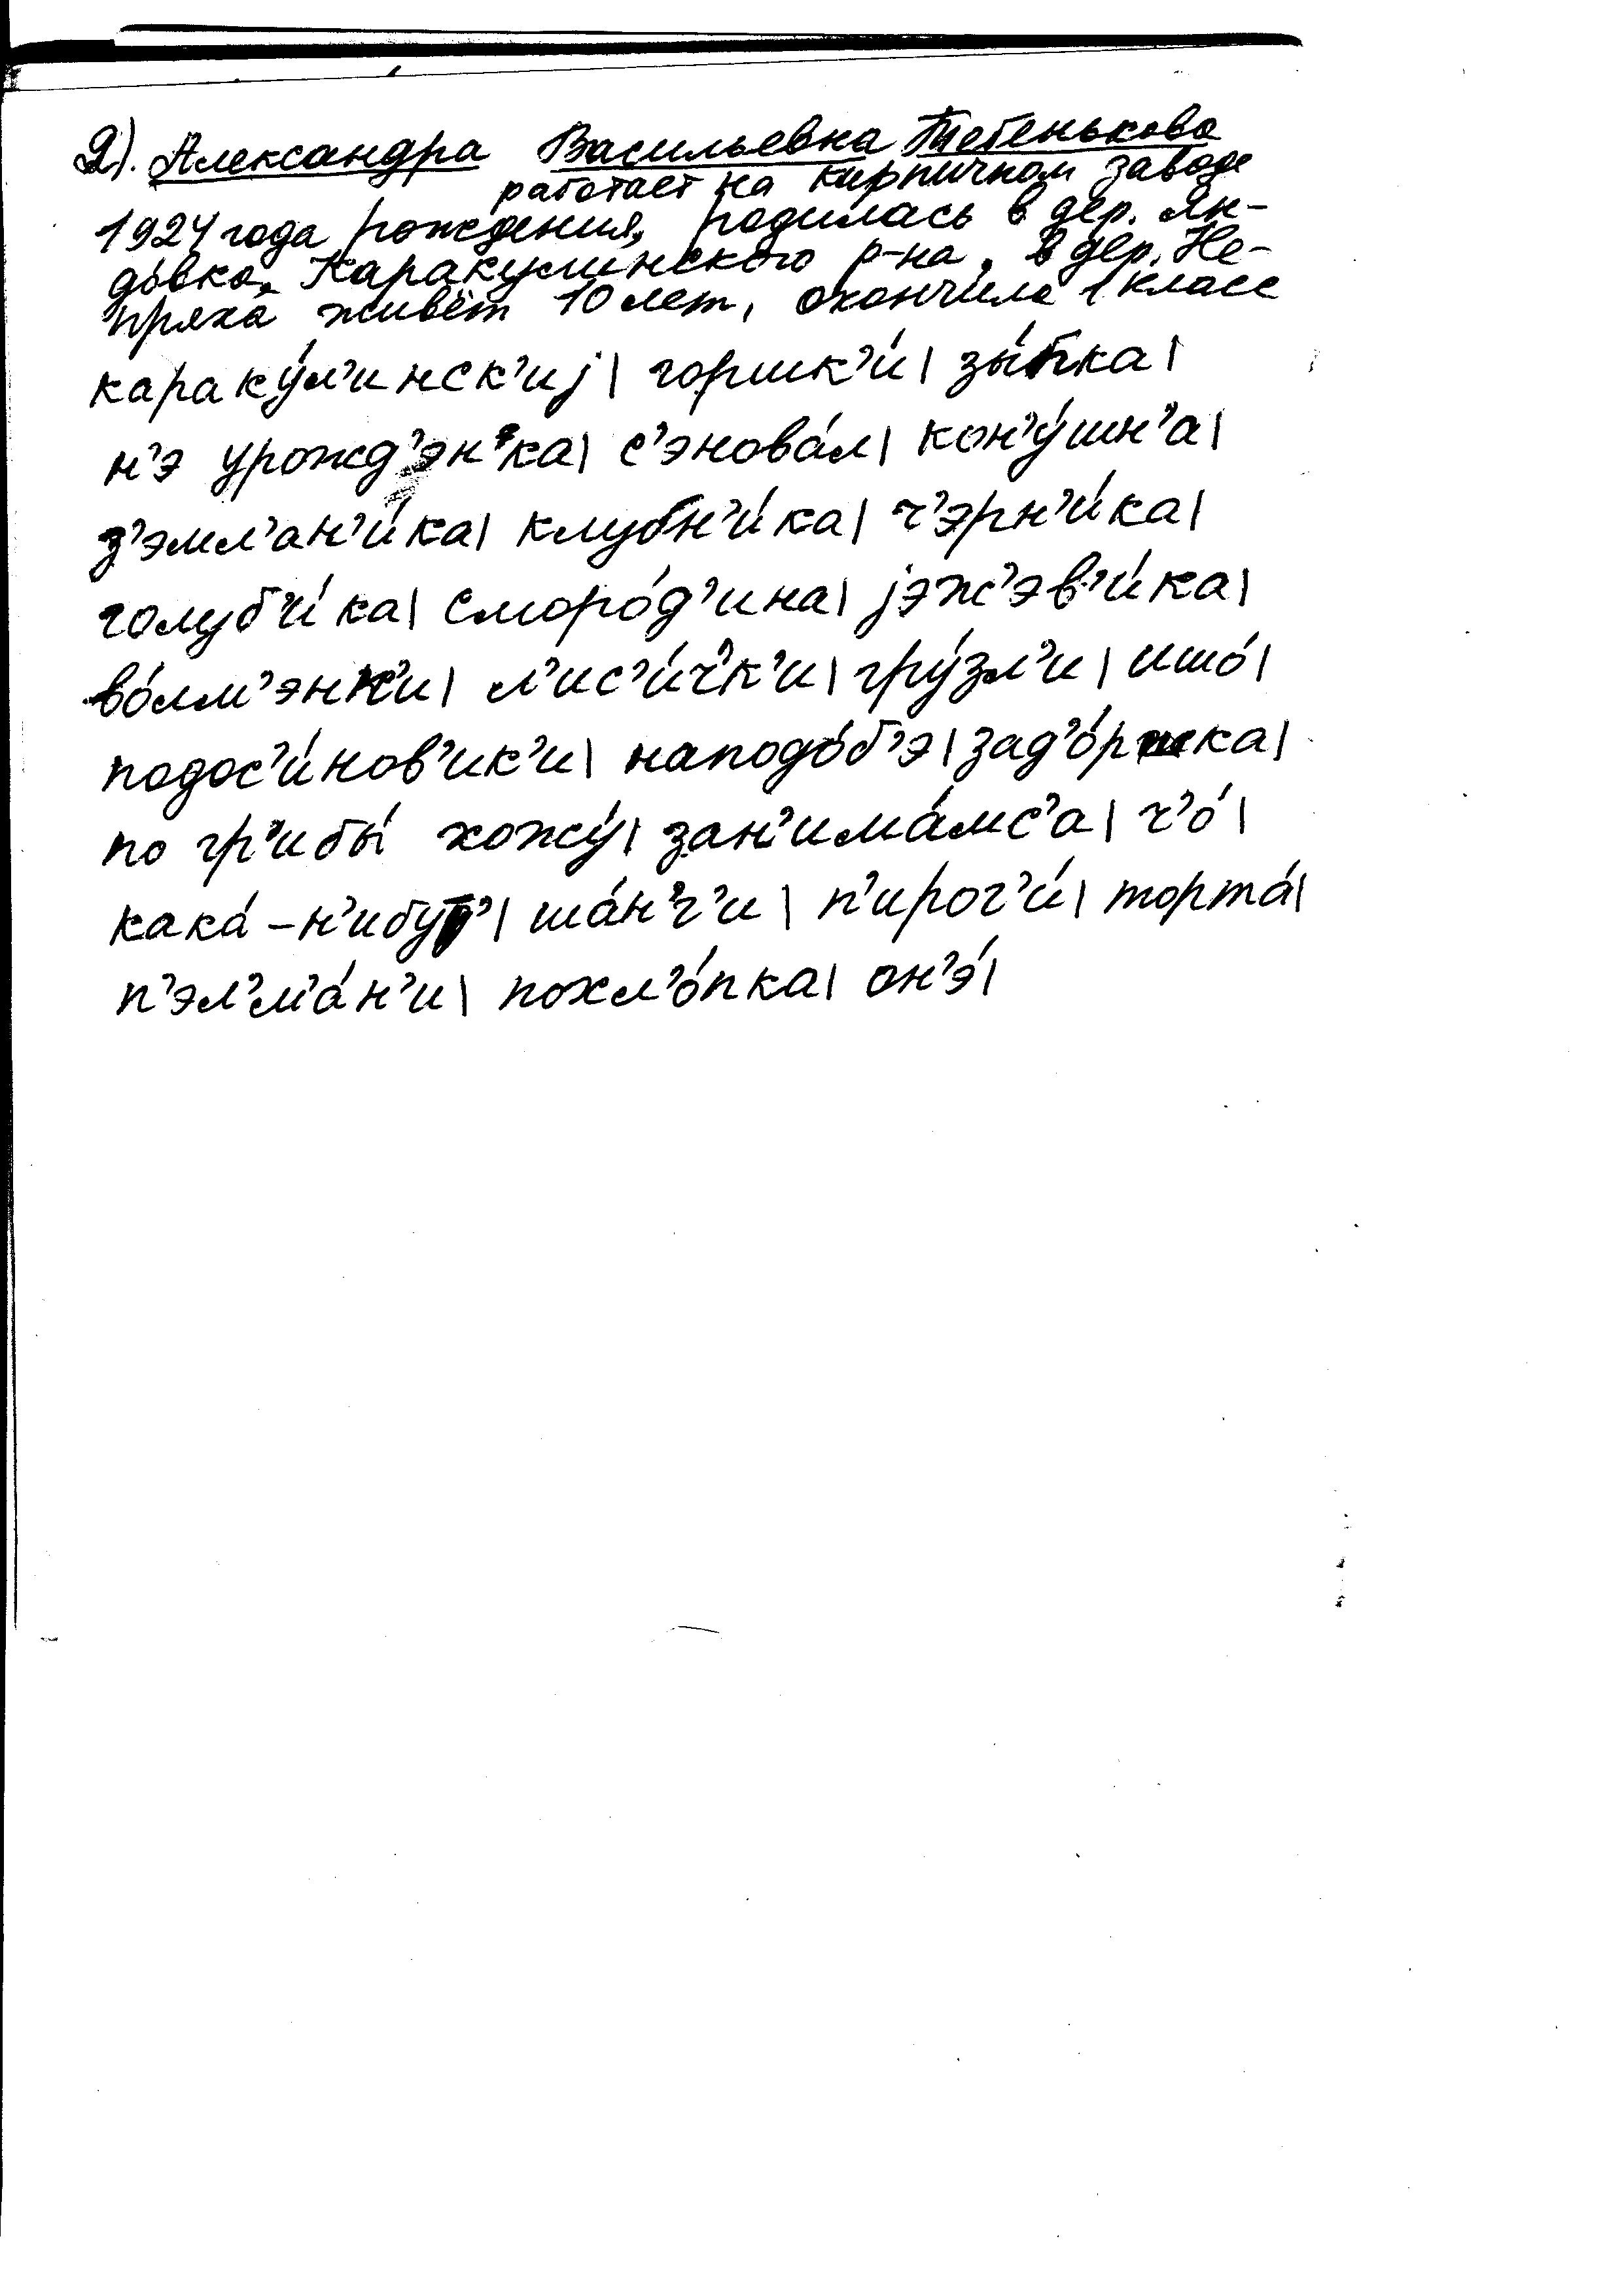 2). Александра Васильевна Тебенькова
работает на кирпичном заводе
1924 года рождения, родилась в дер. Ян-
довка, Каракулинского р-на, в дер. Не-
пряха живёт 10 лет, окончила 1 класс
караку́л'инск'иj| горшк'и́| зы́пка|
н'э урожд'эн'ка| с'энова́л| кон'у́шн'а|
з'эмл'ан'и́ка| клубн'и́ка| ч'эрн'и́ка|
голуб'и́ка| сморо́д'ина| jэж'эв'и́ка|
во́лм'энк'и| л'ис'и́ч'к'и| гру́зл'и| ишо́|
подос'и́нов'ик'и| наподо́б'э| зад'о́ршка|
по гр'ибы́ хожу́| зан'има́мс'а| ч'о́|
кака́-н'ибут'| ша́н'г'и| п'ирог'и́| торта́|
п'эл'м'а́н'и| похл'о́пка| он'э́|